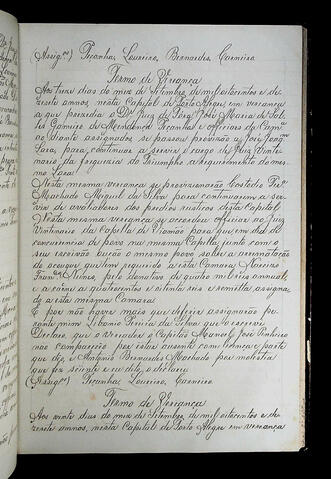 (Assign.os) Peçanha, Loureiro, Bernardes, Carneiro
Termo de Vereança
Aos tres dias do mez de Setembro de mil oitocentos e de-
zesete annos, nesta Capital de Porto Alegre em vereança
a que presedio o Dr. Juiz de Fora José Maria de Sal-
les Gameiro de Mendonça Peçanha e Officiaes da Cama-
ra ao diante assignados se passou provisão a José Joaqm
Lara, para continuar a servir o cargo de Juiz Vinte-
nario da freguezia do Triumpho a requerimento do mes-
mo Lara
Nesta mesma vereança se provisionarão Custodio
Machado e Miguel da Silva para continuarem a ser-
vir de avaliadores dos predios rusticos desta Capital
Nesta mesma vereança se accordou officiar ao Juiz
Vintenario da Capella de Viamão para que, em dia de
concurrencia de povo na mesma Capella, junto com o
seu escrivão oução o mesmo povo sobre a arrematação
do açougue que tem requerido a esta Camara
pelo donativo de quatro mil reis annuaes
e a carne a quatrocentos e oitenta reis e remetta assigna-
do a esta mesma Camara
E por não haver mais que deferir assignarão pe-
rante mim Libanio Pereira da Silva que o escrevi
Declaro que o vereador o Capitão Manoel José Pinheiro
não compareceu por estar ausente com licença e parte
que deo, e Antonio Bernardes Machado por molestia
que fez sciente eu dito, o declarei
(Assig.os) Peçanha, Loureiro, Carneiro
Termo de Vereança
Aos vinte dias do mez de Setembro de mil oitocentos e de-
zesete annos, nesta Capital de Porto Alegre em vereança